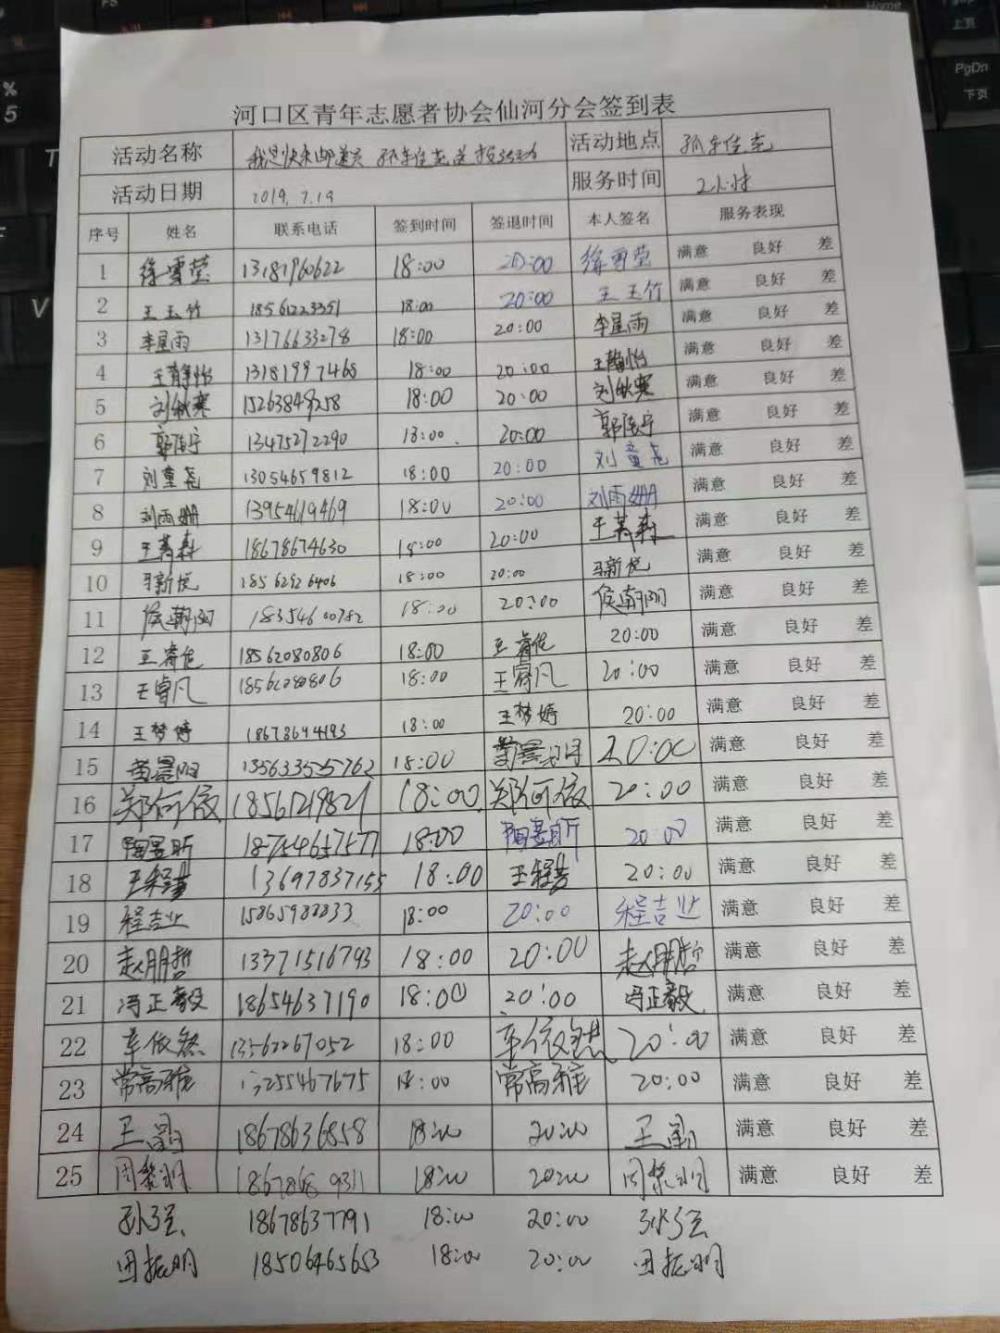 河口区青年志愿者协会仙河分会签到表
活动名称 我是快乐邮递员 活动地点
活动日期 2019.7.19 服务时间 2小时
序号 姓名 联系电话 签到时间 签退时间 本人签名 服务表现
1 徐雪莹 13181960622 18:00 20:00 徐雪莹 满意 良好 差
2 王玉竹 18561223351 18:00 20:00 王玉竹 满意 良好 差
3 李星雨 13176633278 18:00 20:00 李星雨 满意 良好 差
4 王静怡 13181997468 18:00 20:00 王静怡 满意 良好 差
5 刘秋寒 15263849258 18:00 20:00 刘秋寒 满意 良好 差
6 13475272290 18:00 20:00 满意 良好 差
7 刘童尧 13054659812 18:00 20:00 刘童尧 满意 良好 差
8 刘雨姗 13954619469 18:00 20:00 刘雨姗 满意 良好 差
9 18678674630 18:00 20:00 满意 良好 差
10 马新悦 18562926406 18:00 20:00 马新悦 满意 良好 差
11 侯朝阳 18354600782 18:00 20:00 侯朝阳 满意 良好 差
12 18562080806 18:00 20:00 满意 良好 差
13 王睿凡 18562080806 18:00 王睿凡 20:00 满意 良好 差
14 王梦婷 18678694193 18:00 王梦婷 20:00 满意 良好 差
15 18:00 20:00 满意 良好 差
16 郑何依 18561219821 18:00 郑何依 20:00 满意 良好 差
17 陶昱昕 18754657577 18:00 陶昱昕 20:00 满意 良好 差
18 13697837155 18:00 20:00 满意 良好 差
19 程吉业 18:00 20:00 程吉业 满意 良好 差
20 赵朋哲 13371516793 18:00 20:00 赵朋哲 满意 良好 差
21 冯正毅 18654637190 18:00 20:00 冯正毅 满意 良好 差
22 车依然 13562267052 18:00 车依然 20:00 满意 良好 差
23 常高雅 13255467675 18:00 常高雅 20:00 满意 良好 差
24 18678636858 18:00 20:00 满意 良好 差
25 周黎明 18678689311 18:00 20:00 周黎明 满意 良好 差
孙强 18678637791 18:00 20:00 孙强
田振明 18506465653 18:00 20:00 田振明
%
5
V
PgDn
下页
上页